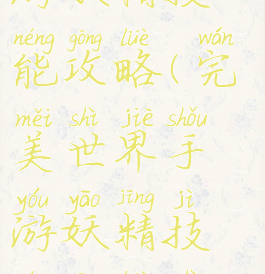 néng gōng lüè wán
能攻略(完
měi shì jiè shǒu
美世界手
yóu yāo jīng jì
游妖精技